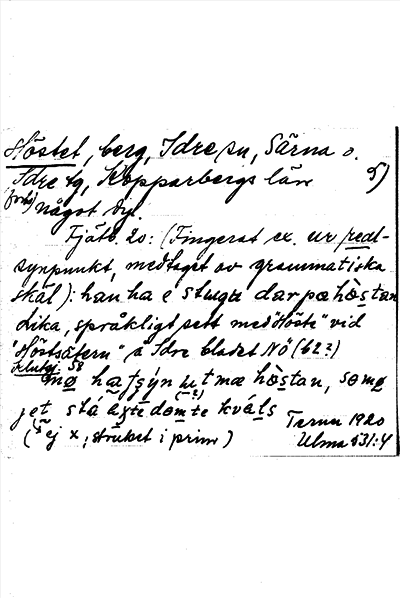 Höstet, berg, Idre sn, Särna o.
Idre tg, Kopparbergs län 5)
(forts) något dyl.
Fjätb. 20: (Fingerat ex. ur real-
synpunkt, medtaget av grammatiska
skäl): han ha e stugu dar pæ hòstan
Lika, språkligt sett med "Höste" vid
"Höstsätern" å Idre bladet NÖ (62?)
58
ha ut mæ hòstan, somø
jet stá domte kváls
(ej x, struket i prim)
Ternu 1920
Ulma 531:4